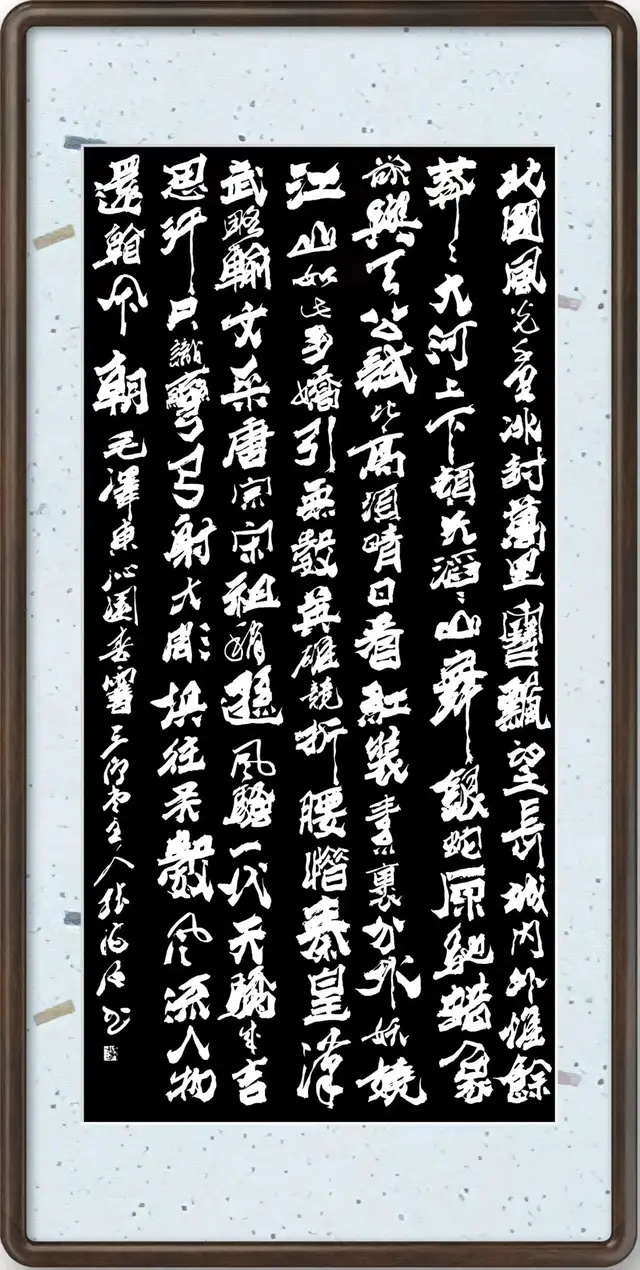 北國風光千里冰封萬里雪飄望長城内外惟餘
莽々大河上下頓失滔々山舞銀蛇原馳蜡象
欲與天公試比高須晴日看紅裝素裹分外妖嬈
江山如此多嬌引無數英雄競折腰惜秦皇漢
武略輸文采唐宗宋祖稍遜風騷一代天驕成吉
思汗只識彎弓射大彫俱往矣數風流人物
還看今朝 毛澤東沁園春雪 堂主人張海書